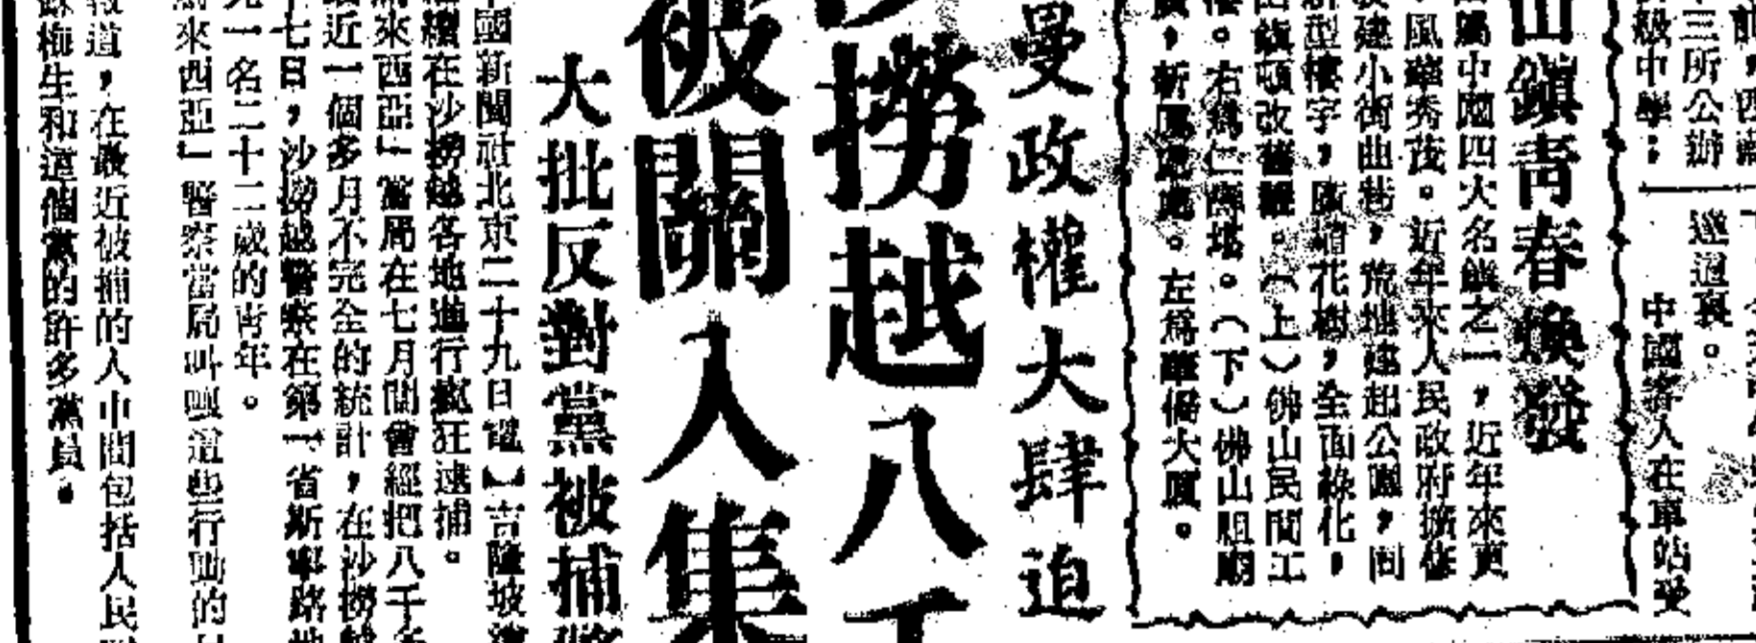 三所公辦
級中學；
遂迎裏。
中國客人在車站受
山鎮青春煥發
屬中國四大名鎮之一，近年來更
風華秀茂。近年來人民政府擴修
建小街曲巷，荒地建起公園，同
型樓宇，廣植花樹，全面綠化，
鎮頓改舊觀。（上）佛山民間工
。右爲仁壽塔。（下）佛山祖廟
，新廣場。左爲華僑大廈。
曼政權大肆迫
沙撈越八千
被關入集
大批反對黨被捕
國新聞社北京二十九日電】吉隆坡
續在沙撈越各地進行瘋狂逮捕。
來西亞」當局在七月間曾經把八千
近一個多月不完全的統計，在沙撈越
十七日，沙撈越警察在第一省斯
一名二十二歲的青年。
來西亞」警察當局叫囂這些行動的
報道，在最近被捕的人中間包括人民
梅生和這個黨的許多黨員。